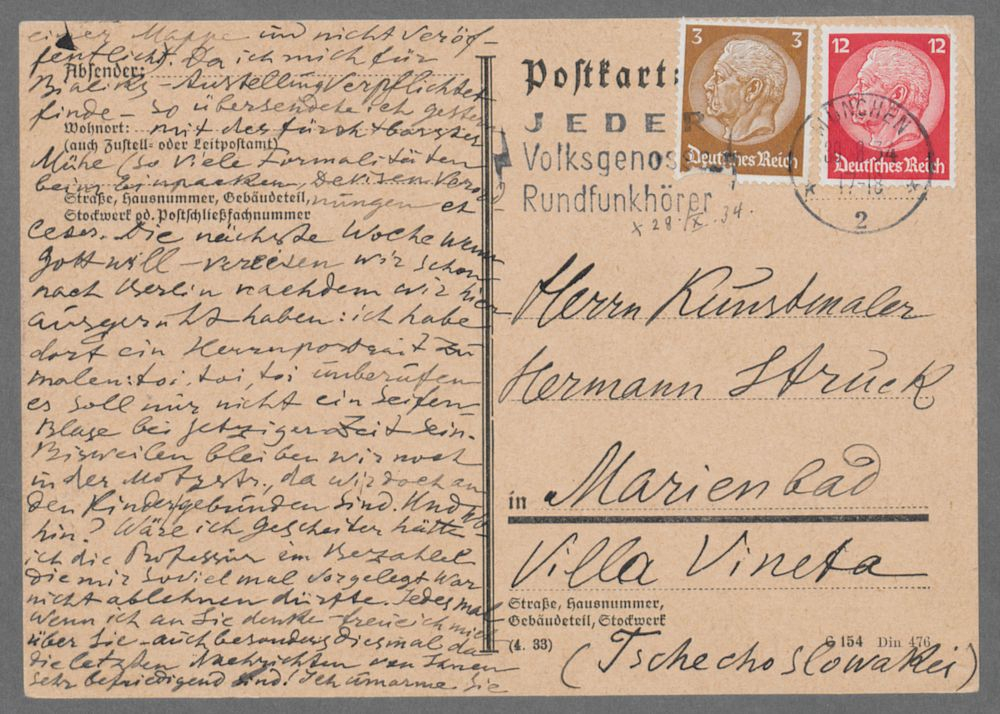 einer Mappe und nicht veröf-
fentlicht. Da ich mich für
Bialiks-Austellung verpflichtet
finde - so übersendete ich gestern
mit der fürchtbarsten
Mühe (so viele Formalitäten
beim Einpacken, Devisen Verord-
nungen et
ceter. Die nächste Woche wenn
Gott will - vereisen wir schon
nach Berlin nachdem wir hier
ausgeruht haben: ich habe
dort ein Herrnportrait zu
malen: toi, toi, toi unberufen
es soll nur nicht ein Seifen-
Blase bei jetziger Zeit sein.
Bisweilen bleiben wir noch
in der Motzstr., da wir doch an
den Kinder gebunden sind. Und wo
hin? Wäre ich gescheiter hätte
ich die Professur im Bezahlel
die mir soviel mal vorgelegt war
nicht ablehnen dürfte. Jedes mal
wenn ich an Sie denke - freue ich mich
über Sie - auch besonders diesmal da
die letzten Nachrichten von Ihnen
sehr befriedigend sind! Ich umarme Sie
Absender:
Wohnort:
(auch Zustell- oder Leitpostamt)
Straße, Hausnummer, Gebäudeteil,
Stockwerk od. Postschließfachnummer
Postkarte
3 3
Deutsches Reich
12 12
Deutsches Reich
JEDER
Volksgenosse
Rundfunkhörer
MÜNCHEN
17-18
2
x 28./X. 34.
Herrn Kunstmaler
Hermann Struck
in Marienbad
Villa Vineta
Straße, Hausnummer,
Gebäudeteil, Stockwerk
(4. 33)
C 154 Din 476
(Tschechoslowakei)